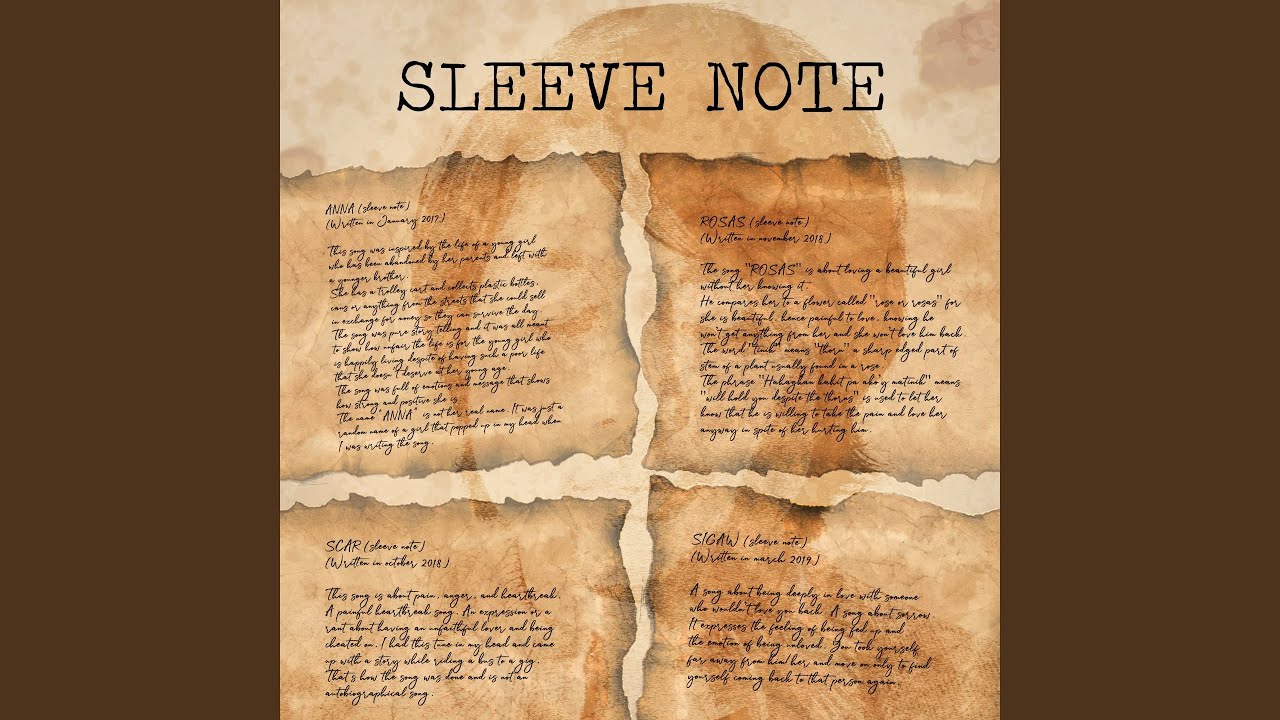 SLEEVE NOTE
ANNA (sleeve note)
(Written in January 2017)
This song was inspired by the life of a young girl
who has been abandoned by her parents and left with
a younger brother.
She has a trolley cart and collects plastic bottles,
cans or anything from the streets that she could sell
in exchange for money so they can survive the day.
The song was pure story telling and it was all meant
to show how unfair the life is for the young girl who
is happily living despite of having such a poor life
that she doesn't deserve at her young age.
The song was full of emotions and message that shows
how strong and positive she is.
The name "ANNA" is not her real name. It was just a
random name of a girl that popped up in my head when
I was writing the song.
ROSAS (sleeve note)
(Written in november 2018)
The song "ROSAS" is about loving a beautiful girl
without her knowing it.
He compares her to a flower called "rose or rosas" for
she is beautiful, hence painful to love, knowing he
won't get anything from her and she won't love him back.
The word "tinik" means "thorn" a sharp edged part of
stem of a plant usually found in a rose.
The phrase "Hahagkan kahit pa ako'y matinik" means
"will hold you despite the thorns" is used to let her
know that he is willing to take the pain and love her
anyway in spite of her hurting him.
SCAR (sleeve note)
(Written in october 2018)
This song is about pain, anger, and heartbreak.
A painful heartbreak song. An expression or a
rant about having an unfaithful lover and being
cheated on. I had this tune in my head and came
up with a story while riding a bus to a gig.
That's how the song was done and is not an
autobiographical song.
SIGAW (sleeve note)
(Written in march 2019)
A song about being deeply in love with someone
who wouldn't love you back. A song about sorrow.
It expresses the feeling of being fed up and
the emotion of being unloved. You took yourself
far away from him/her and move on only to find
yourself coming back to that person again.